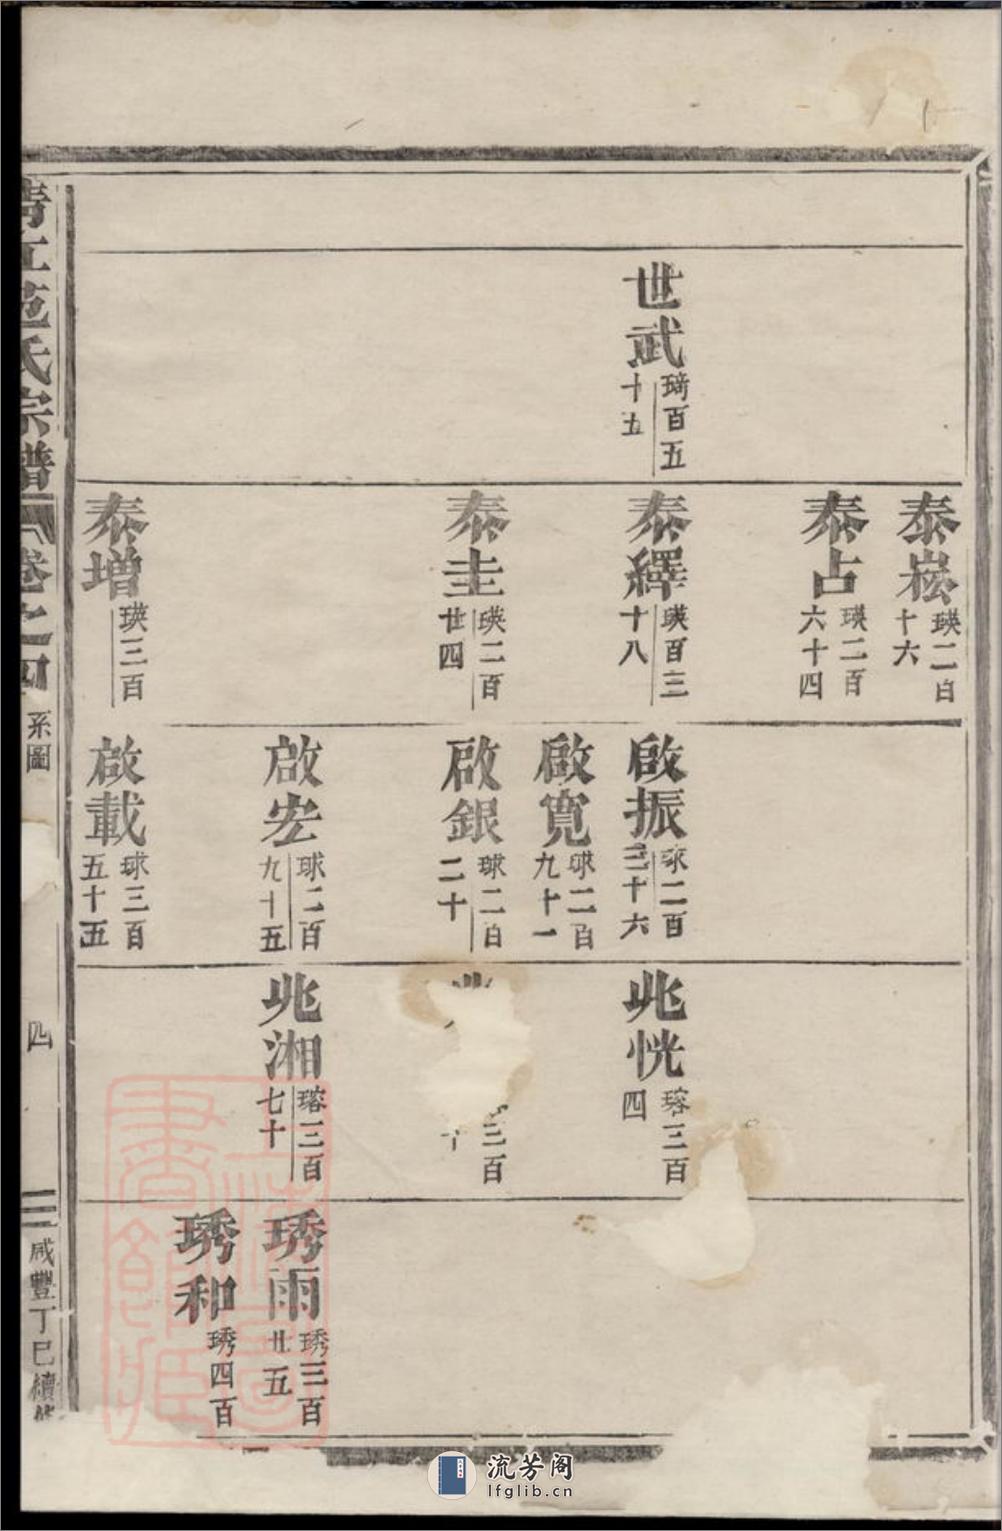 世武 琦百五十五
泰崧 瑛二百十六
泰占 瑛二百六十四
泰繹 瑛百三十八
泰圭 瑛二百廿四
泰增 瑛三百
啟振 球二百三十六
啟寬 球二百九十一
啟銀 球二百二十
啟宏 球二百九十五
啟載 球三百五十五
兆恍 瑢三百四
兆 三百十
兆湘 瑢三百七十
琇雨 琇三百廿五
琇和 琇四百
清江范氏宗譜 卷之四 系圖 四 咸豐丁巳續修
流芳阁
lfglib.cn